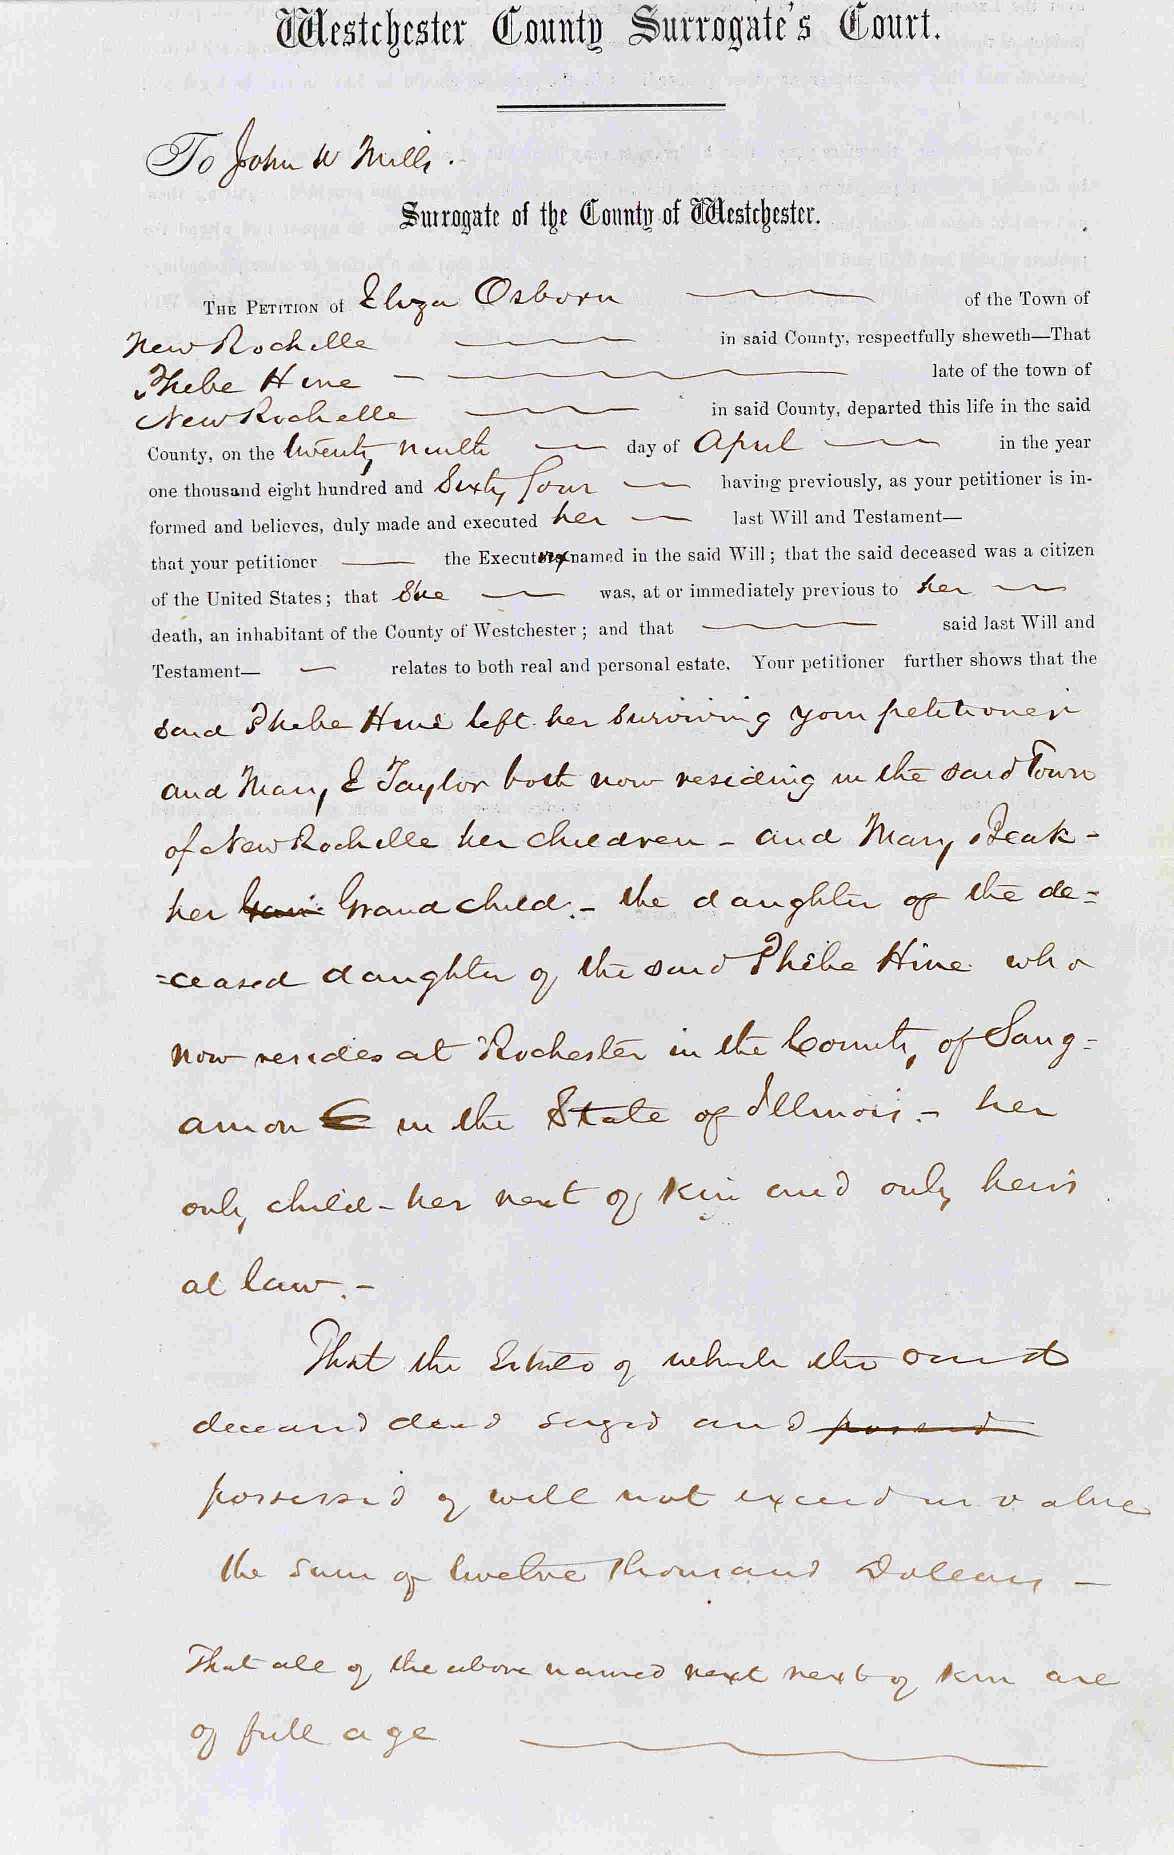 Westchester County Surrogate's Court.
To John W Mills.
Surrogate of the County of Westchester.
THE PETITION of Eliza Osborn of the Town of
New Rochelle in said County, respectfully sheweth—That
Phebe Hine late of the town of
New Rochelle in said County, departed this life in the said
County, on the twenty ninth day of April in the year
one thousand eight hundred and Sixty four having previously, as your petitioner is in-
formed and believes, duly made and executed her last Will and Testament—
that your petitioner the Executrix named in the said Will; that the said deceased was a citizen
of the United States; that She was, at or immediately previous to her
death, an inhabitant of the County of Westchester; and that said last Will and
Testament— relates to both real and personal estate. Your petitioner further shows that the
said Phebe Hine left her surviving your petitioner
and Mary E Taylor both now residing in the said Town
of New Rochelle her children - and Mary Beak -
her Grand child. - the daughter of the de=
=ceased daughter of the said Phebe Hine who
now resides at Rochester in the County of Sang=
amon in the State of Illinois. - her
only child - her next of kin and only heirs
at law. -
That the Estate of which the said
deceased died seized and possessd
possess'd of will not exceed in value
the sum of twelve thousand Dollars -
That all of the above named next next of kin are
of full age